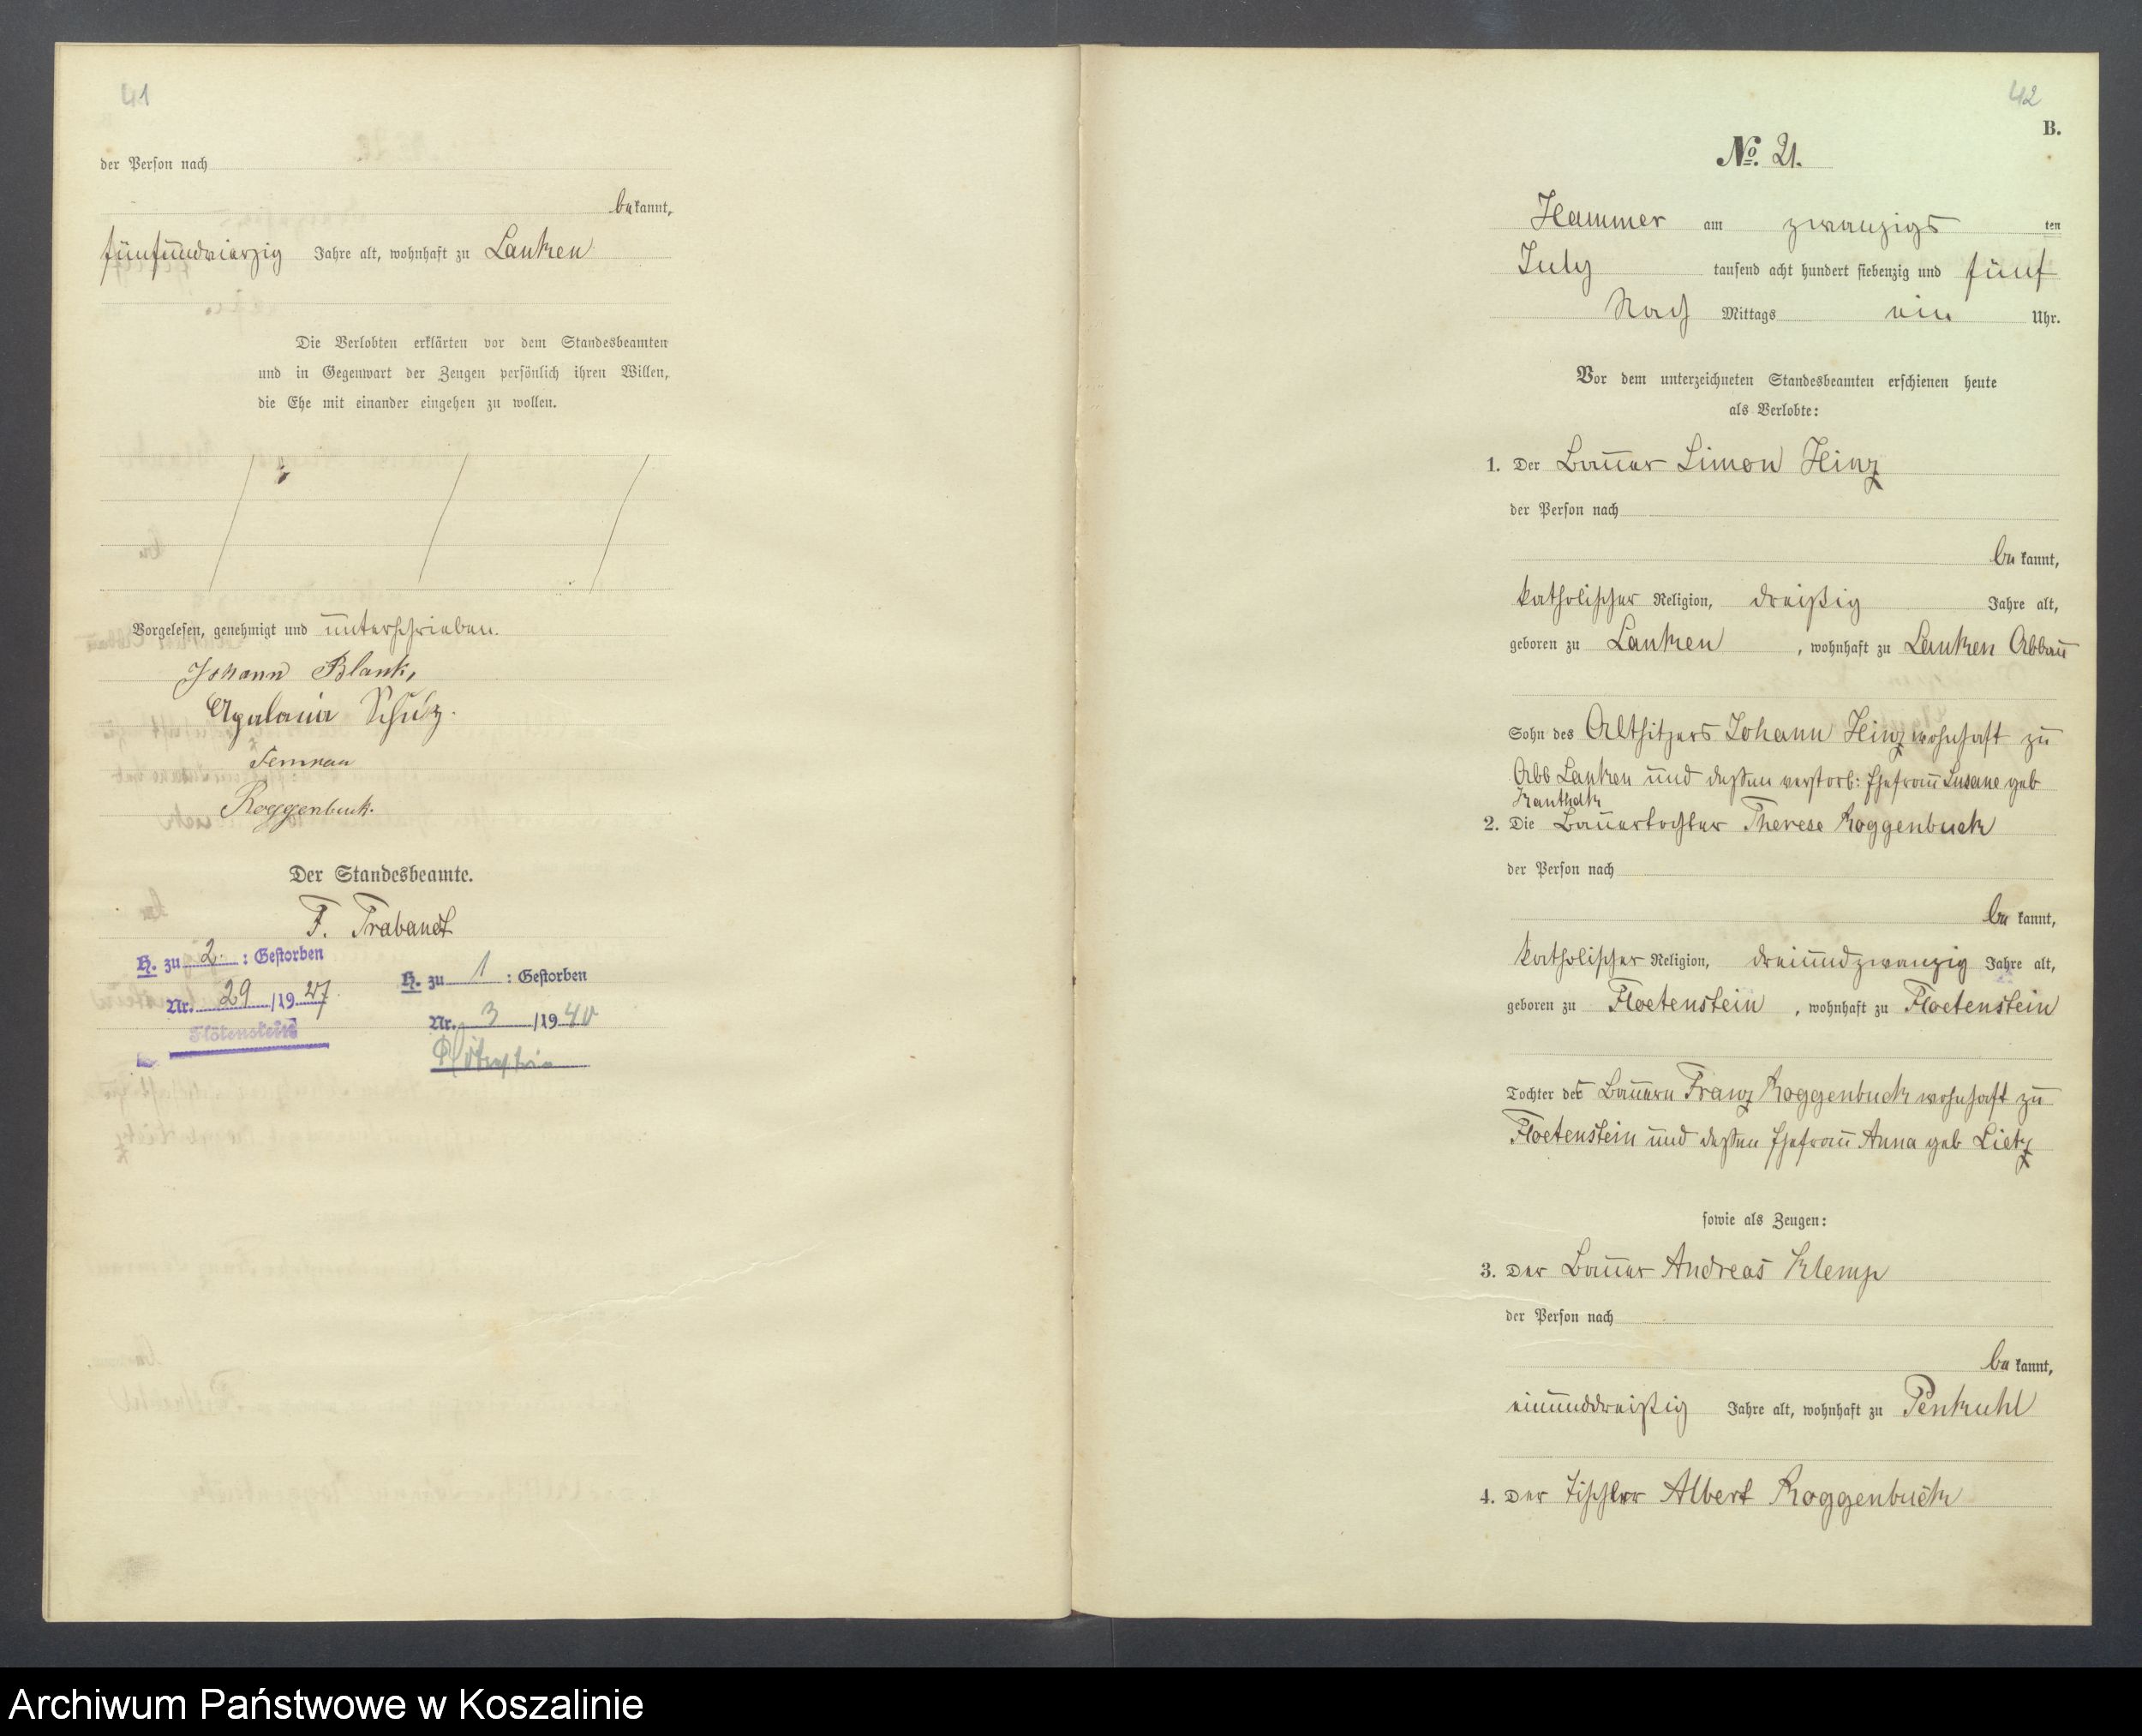 41
der Person nach
bekannt,
fünfundvierzig Jahre alt, wohnhaft zu Lanken
Die Verlobten erklärten vor dem Standesbeamten
und in Gegenwart der Zeugen persönlich ihren Willen,
die Ehe mit einander eingehen zu wollen.
Vorgelesen, genehmigt und unterschrieben.
Johann Blank,
Schulz.
Semrau
Roggenbuck.
Der Standesbeamte.
F. Trabandt
H. zu 2. : Gestorben
Nr. 29 /19 27.
Flötenstein
H. zu 1 : Gestorben
Nr. 3 /19 40
Flötenstein
42
B.
No. 21.
Hammer am zwanzigs ten
July tausend acht hundert siebenzig und fünf
Nach Mittags ein Uhr.
Vor dem unterzeichneten Standesbeamten erschienen heute
als Verlobte:
1. Der Bauer Simon Hinz
der Person nach
be kannt,
katholischer Religion, dreißig Jahre alt,
geboren zu Lanken , wohnhaft zu Lanken Abbau
Sohn des Altsitzers Johann Hinz wohnhaft zu
Abb Lanken und deßen verstorb: Ehefrau Susane geb
2. Die Bauertochter Therese Roggenbuck
der Person nach
be kannt,
katholischer Religion, dreiundzwanzig Jahre alt,
geboren zu Floetenstein , wohnhaft zu Floetenstein
Tochter des Bauern Franz Roggenbuck wohnhaft zu
Floetenstein und deßen Ehefrau Anna geb Lietz
sowie als Zeugen:
3. Der Bauer Andreas Klemp
der Person nach
be kannt,
einunddreißig Jahre alt, wohnhaft zu Penkuhl
4. Der Tischler Albert Roggenbuck
Archiwum Państwowe w Koszalinie